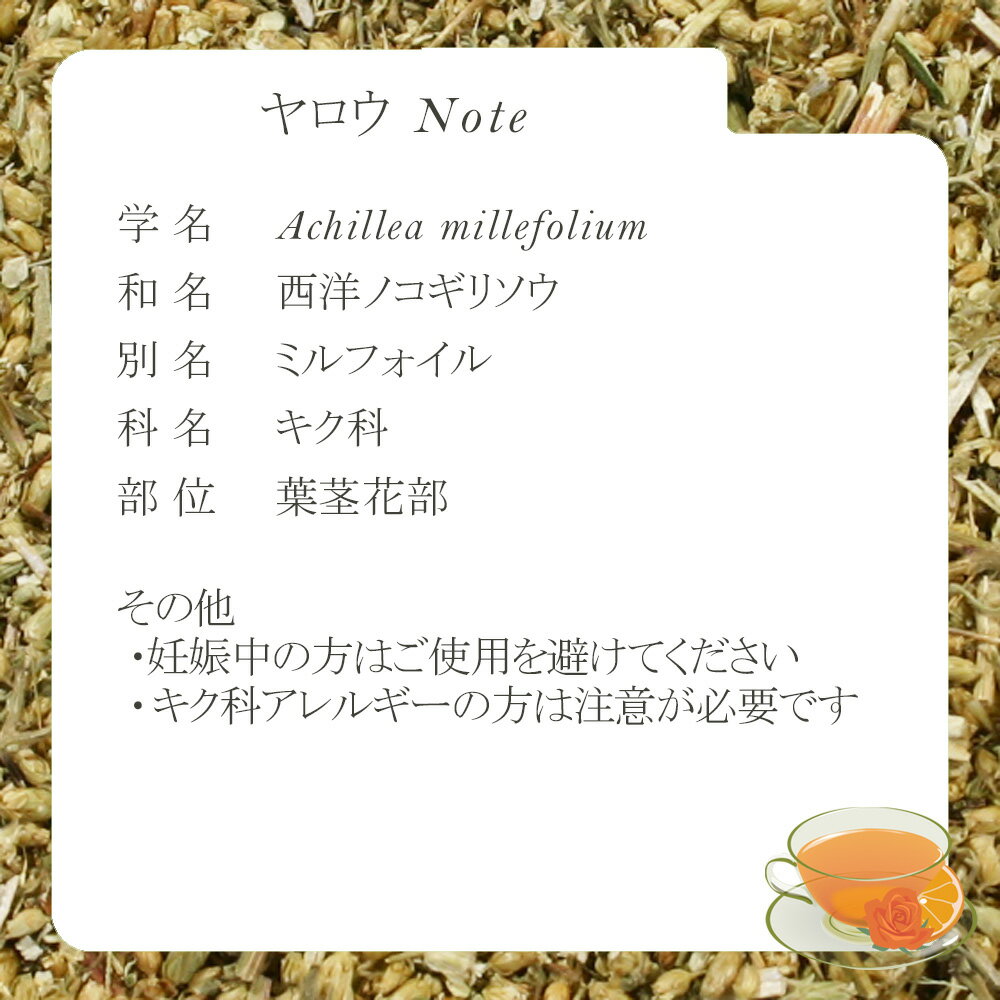 ヤロウ Note
学名 Achillea millefolium
和名 西洋ノコギリソウ
別名 ミルフォイル
科名 キク科
部位 葉茎花部
その他
・妊娠中の方はご使用を避けてください
・キク科アレルギーの方は注意が必要です